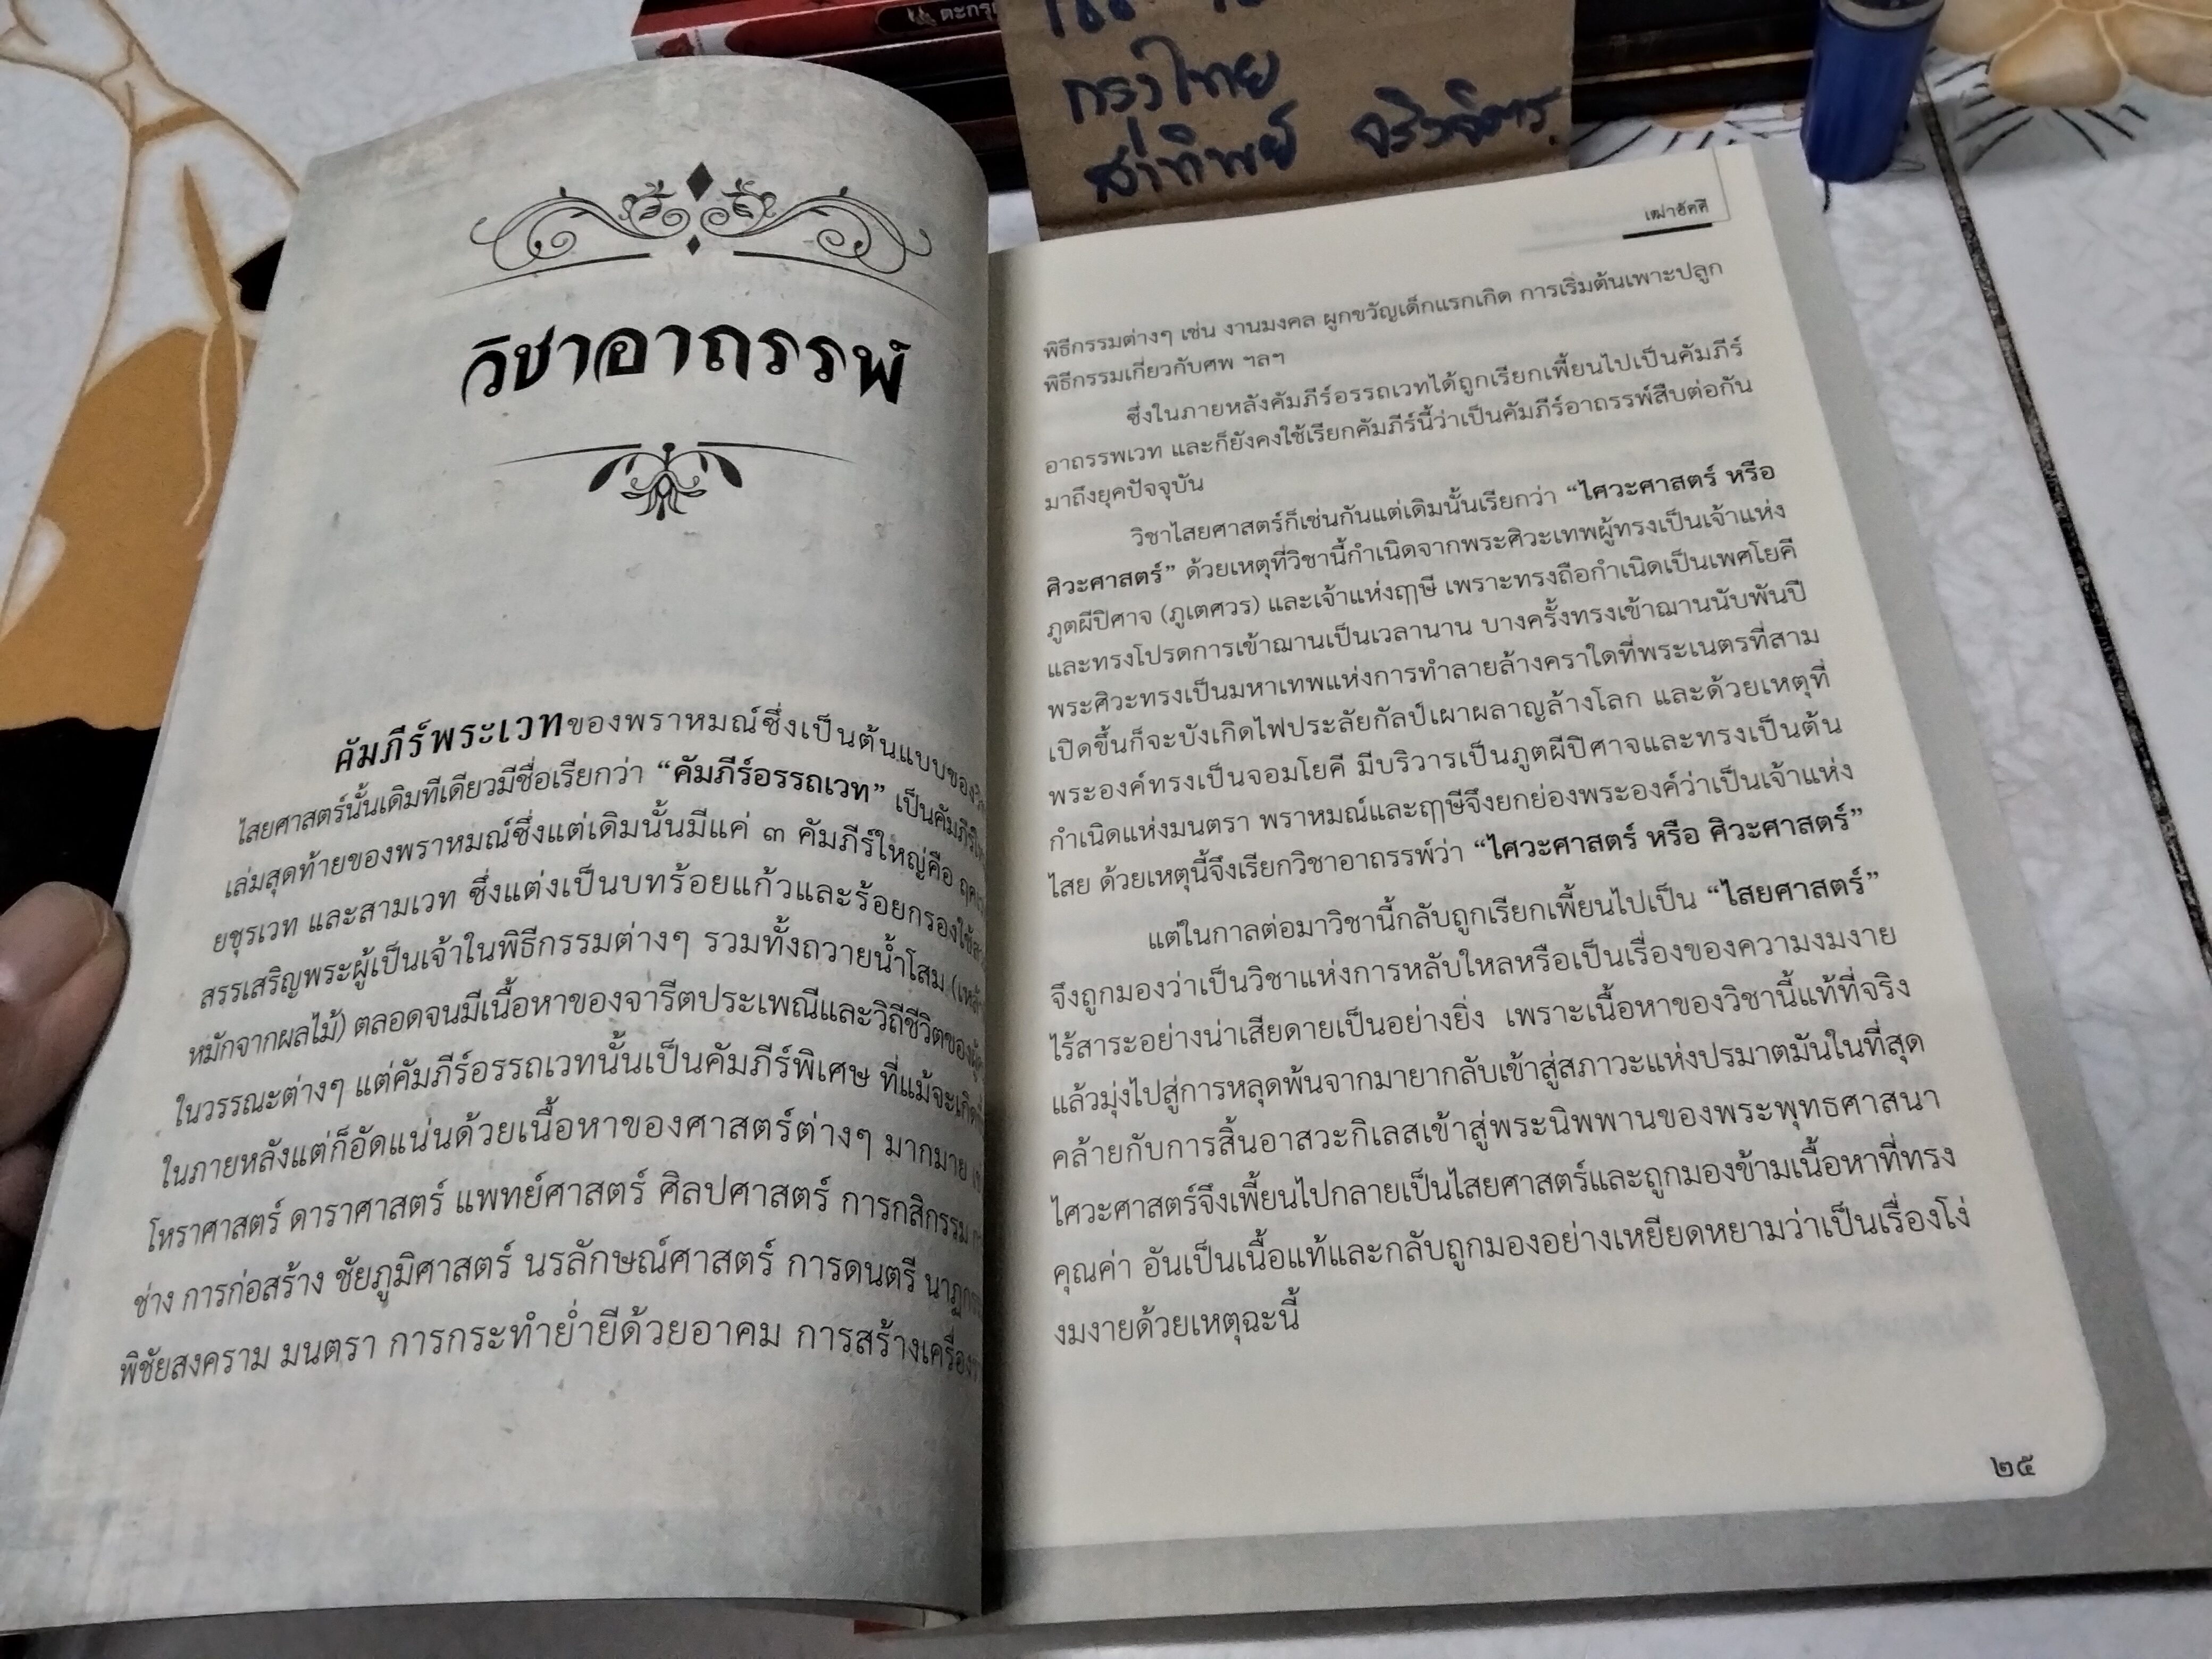 ตะกรุ
กรุงไทย
วิชาอาถรรพ์
คัมภีร์พระเวทของพราหมณ์ซึ่งเป็นต้นแบบของ
ไสยศาสตร์นั้นเดิมทีเดียวมีชื่อเรียกว่า “คัมภีร์อรรถเวท” เป็นคัมภีร์
เล่มสุดท้ายของพราหมณ์ซึ่งแต่เดิมนั้นมีแค่ ๓ คัมภีร์ใหญ่คือ
ยชุรเวท และสามเวท ซึ่งแต่งเป็นบทร้อยแก้วและร้อยกรองใช้
สรรเสริญพระผู้เป็นเจ้าในพิธีกรรมต่างๆ รวมทั้งถวายน้ำโสม
หมักจากผลไม้) ตลอดจนมีเนื้อหาของจารีตประเพณีและวิถีชีวิตของ
ในวรรณะต่างๆ แต่คัมภีร์อรรถเวทนั้นเป็นคัมภีร์พิเศษ ที่แม้จะเกิด
ในภายหลังแต่ก็อัดแน่นด้วยเนื้อหาของศาสตร์ต่างๆ มากมาย
โหราศาสตร์ ดาราศาสตร์ แพทย์ศาสตร์ ศิลปศาสตร์ การกสิกรรม
ช่าง การก่อสร้าง ชัยภูมิศาสตร์ นรลักษณ์ศาสตร์ การดนตรี
พิชัยสงคราม มนตรา การกระทำย่ำยีด้วยอาคม การสร้างเครื่อง
เฒ่าอัคคี
พิธีกรรมต่างๆ เช่น งานมงคล ผูกขวัญเด็กแรกเกิด การเริ่มต้นเพาะปลูก
พิธีกรรมเกี่ยวกับศพ ฯลฯ
ซึ่งในภายหลังคัมภีร์อรรถเวทได้ถูกเรียกเพี้ยนไปเป็นคัมภีร์
อาถรรพเวท และก็ยังคงใช้เรียกคัมภีร์นี้ว่าเป็นคัมภีร์อาถรรพ์สืบต่อกัน
มาถึงยุคปัจจุบัน
วิชาไสยศาสตร์ก็เช่นกันแต่เดิมนั้นเรียกว่า “ไศวะศาสตร์ หรือ
ศิวะศาสตร์” ด้วยเหตุที่วิชานี้กำเนิดจากพระศิวะเทพผู้ทรงเป็นเจ้าแห่ง
ภูตผีปิศาจ (ภูเตศวร) และเจ้าแห่งฤๅษี เพราะทรงถือกำเนิดเป็นเพศโยคี
และทรงโปรดการเข้าฌานเป็นเวลานาน บางครั้งทรงเข้าฌานนับพันปี
พระศิวะทรงเป็นมหาเทพแห่งการทำลายล้างคราใดที่พระเนตรที่สาม
เปิดขึ้นก็จะบังเกิดไฟประลัยกัลป์เผาผลาญล้างโลก และด้วยเหตุที่
พระองค์ทรงเป็นจอมโยคี มีบริวารเป็นภูตผีปิศาจและทรงเป็นต้น
กำเนิดแห่งมนตรา พราหมณ์และฤๅษีจึงยกย่องพระองค์ว่าเป็นเจ้าแห่ง
ไสย ด้วยเหตุนี้จึงเรียกวิชาอาถรรพ์ว่า “ไศวะศาสตร์ หรือ ศิวะศาสตร์”
แต่ในกาลต่อมาวิชานี้กลับถูกเรียกเพี้ยนไปเป็น “ไสยศาสตร์”
จึงถูกมองว่าเป็นวิชาแห่งการหลับใหลหรือเป็นเรื่องของความงมงาย
ไร้สาระอย่างน่าเสียดายเป็นอย่างยิ่ง เพราะเนื้อหาของวิชานี้แท้ที่จริง
แล้วมุ่งไปสู่การหลุดพ้นจากมายากลับเข้าสู่สภาวะแห่งปรมาตมันในที่สุด
คล้ายกับการสิ้นอาสวะกิเลสเข้าสู่พระนิพพานของพระพุทธศาสนา
ไศวะศาสตร์จึงเพี้ยนไปกลายเป็นไสยศาสตร์และถูกมองข้ามเนื้อหาที่ทรง
คุณค่า อันเป็นเนื้อแท้และกลับถูกมองอย่างเหยียดหยามว่าเป็นเรื่องโง่
งมงายด้วยเหตุฉะนี้
๒๕